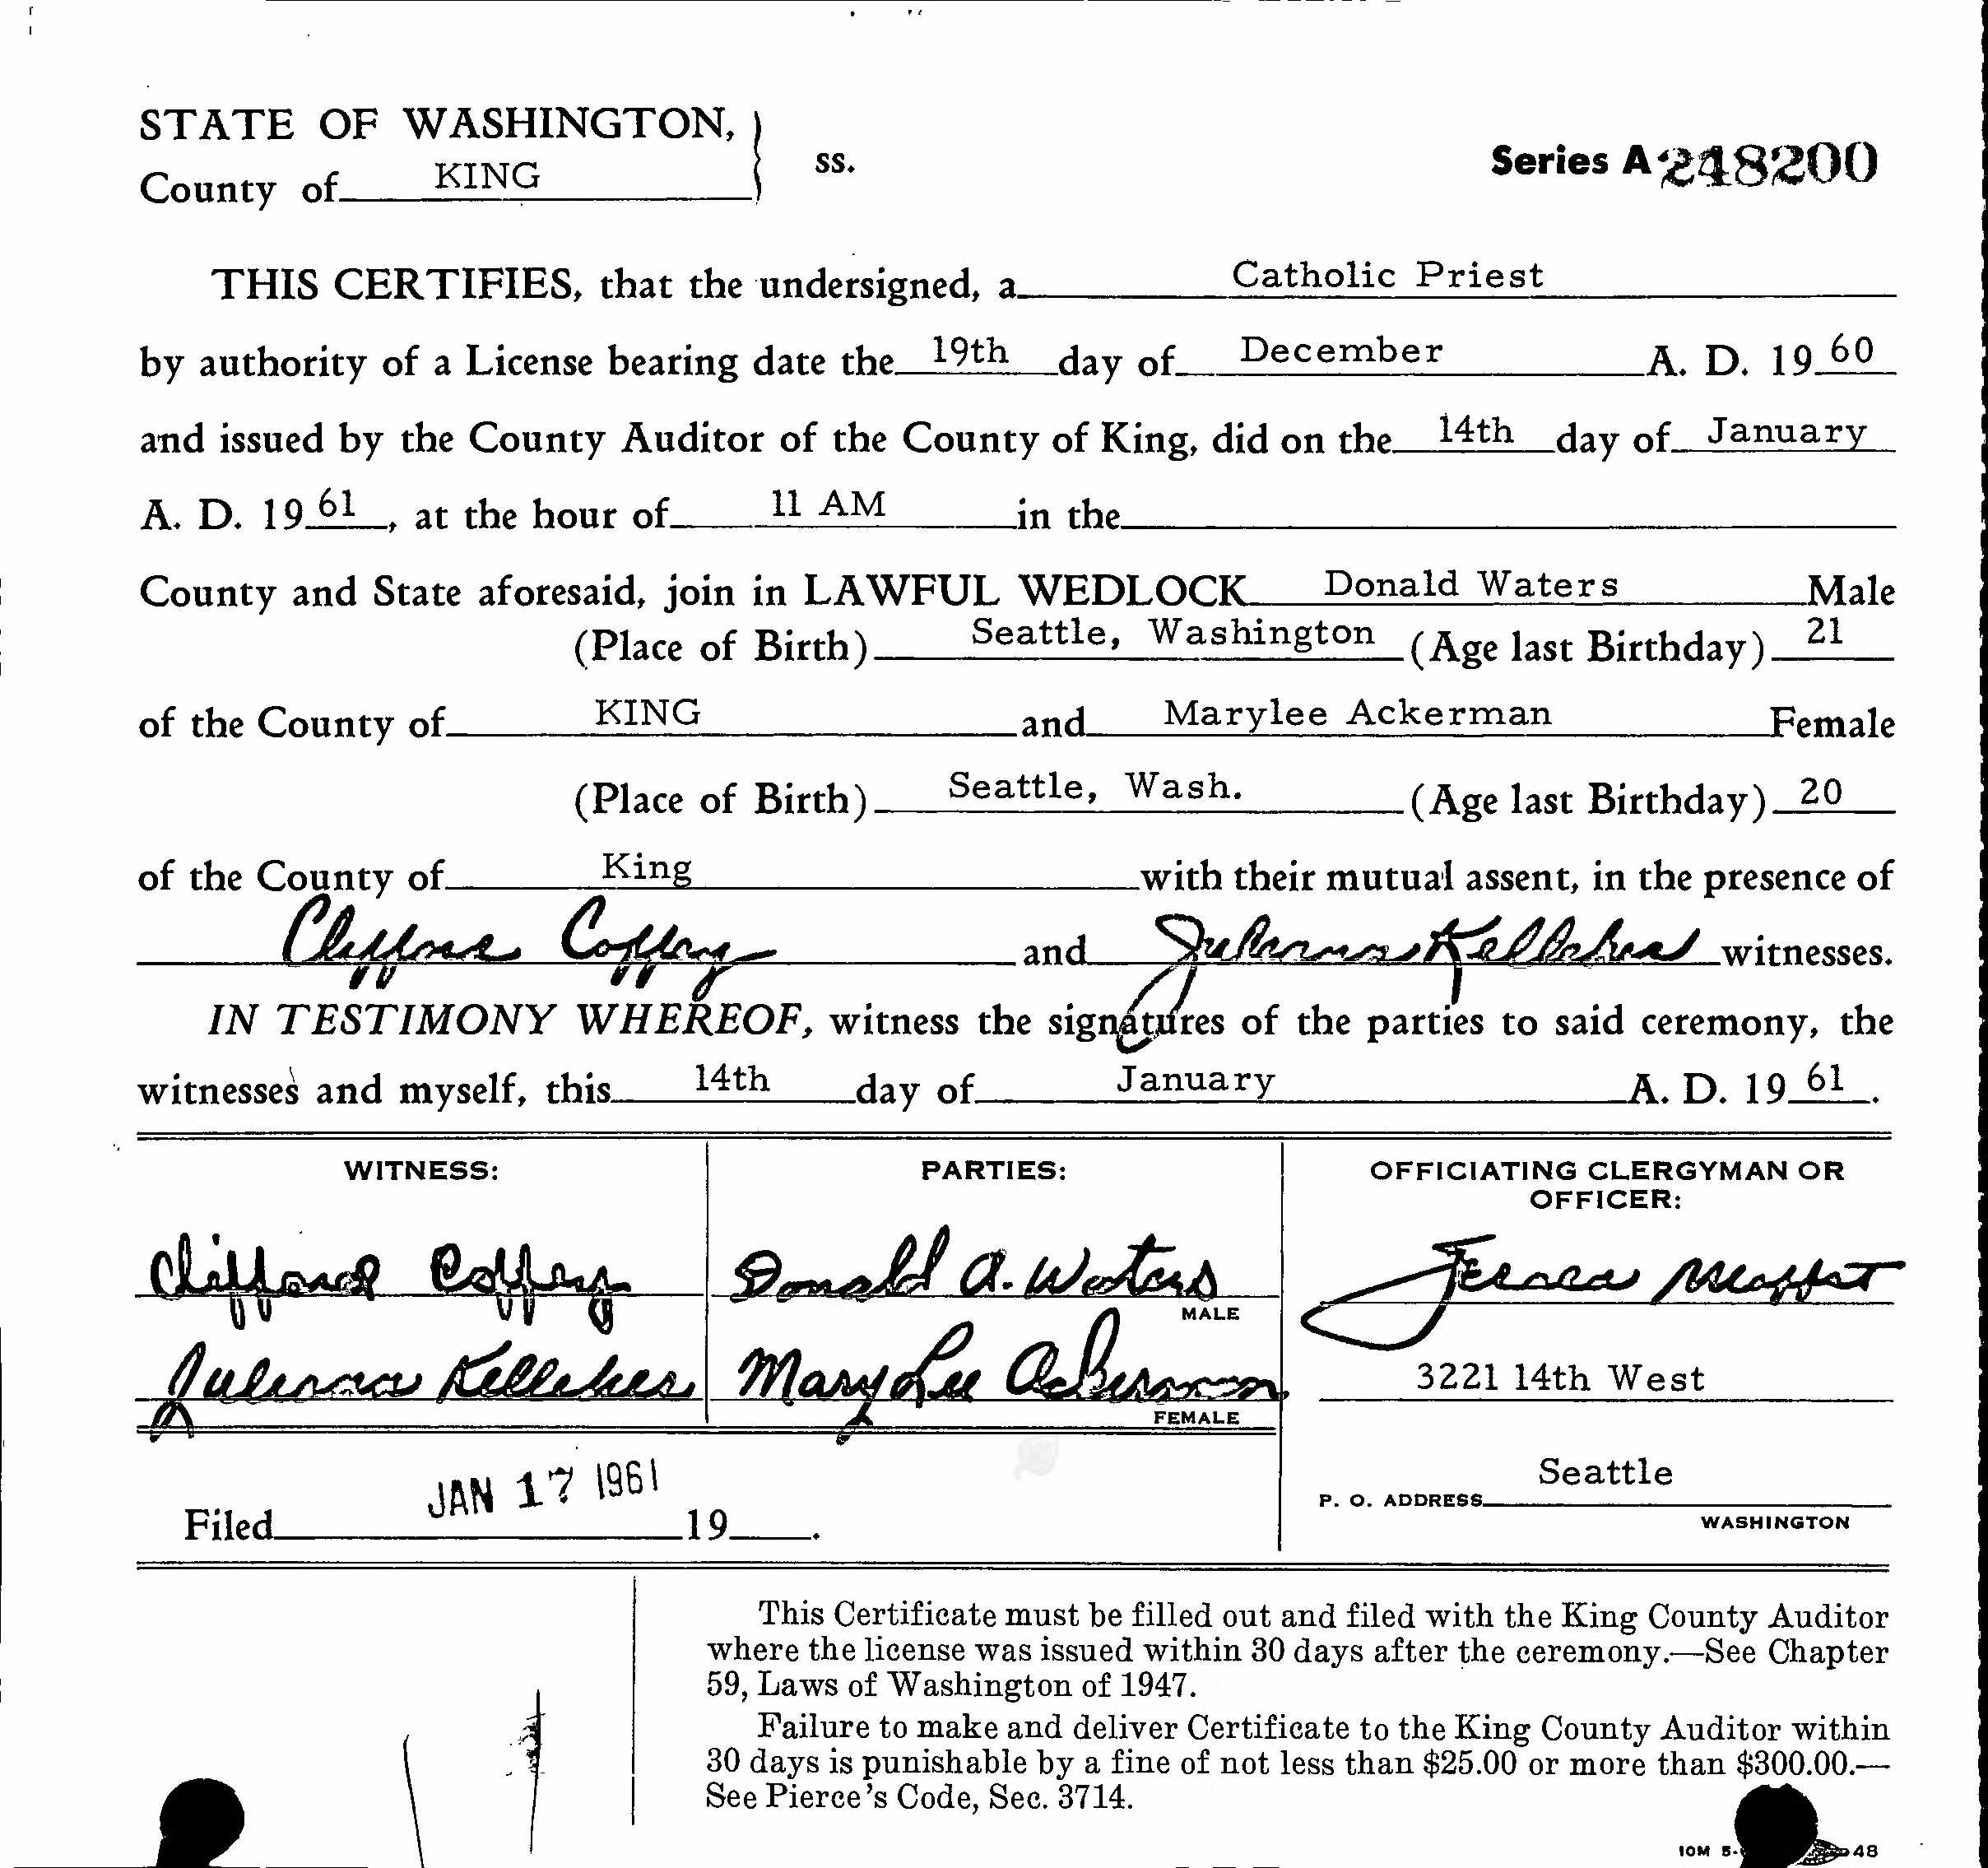 STATE OF WASHINGTON,
County of KING ss.
Series A 248200
THIS CERTIFIES, that the undersigned, a Catholic Priest
by authority of a License bearing date the 19th day of December A. D. 19 60
and issued by the County Auditor of the County of King, did on the 14th day of January
A. D. 19 61, at the hour of 11 AM in the
County and State aforesaid, join in LAWFUL WEDLOCK Donald Waters Male
(Place of Birth) Seattle, Washington (Age last Birthday) 21
of the County of KING and Marylee Ackerman Female
(Place of Birth) Seattle, Wash. (Age last Birthday) 20
of the County of King with their mutual assent, in the presence of
Clifford Coffey and Julianna Kelleher witnesses.
IN TESTIMONY WHEREOF, witness the signatures of the parties to said ceremony, the
witnesses and myself, this 14th day of January A. D. 19 61.
WITNESS: PARTIES: OFFICIATING CLERGYMAN OR
OFFICER:
Clifford Coffey Donald A. Waters Moffat
MALE
Julianna Kelleher Mary Lee Ackerman 3221 14th West
FEMALE
Seattle
P. O. ADDRESS
WASHINGTON
Filed JAN 17 1961 19 .
This Certificate must be filled out and filed with the King County Auditor
where the license was issued within 30 days after the ceremony.—See Chapter
59, Laws of Washington of 1947.
Failure to make and deliver Certificate to the King County Auditor within
30 days is punishable by a fine of not less than $25.00 or more than $300.00.—
See Pierce's Code, Sec. 3714.
10M 5- 48